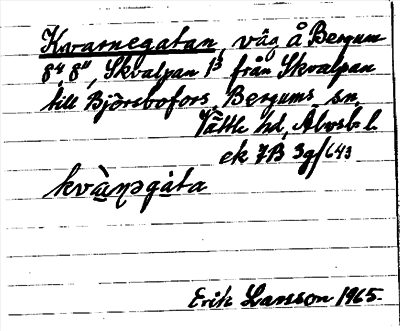 Kvarnegatan, väg å Bergum
8⁴, 8¹¹, Skvalpan 1³ från Skvalpan
till Björsbofors, Bergums sn,
Vättle hd, Älvsb. l.
ek 7B 3g/643
kvàṇəgàta
Erik Larsson 1965.